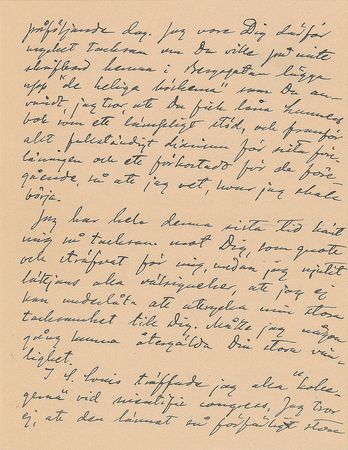 påföljande dag. Jag vore Dig därför
mycket tacksam om Du ville på mitte
skrifbord hemma i Bergsgatan lägga
upp "de heliga böckerna" som Du an-
vändt, jag tror, att Du fick låna hennes
bok som ett lämpligt stöd, och framför
allt fullständigt dictum för sista före-
läsningen och ett förkortadt för de före-
gående, så att jag vet, hvar jag skall
börja.
Jag har hela denna sista tid känt
mig så tacksam mot Dig, som gnott
och sträfvat för mig, medan jag njutit
lättjans alla välsignelser, att jag ej
kan underlåta att uttrycka min stora
tacksamhet till Dig. Måtte jag någon
gång kunna återgälda Din stora vän-
lighet.
I S. Louis träffade jag alla "kolle-
gerna" vid scientific congress. Jag tror
ej, att den lämnat så förfärligt stora